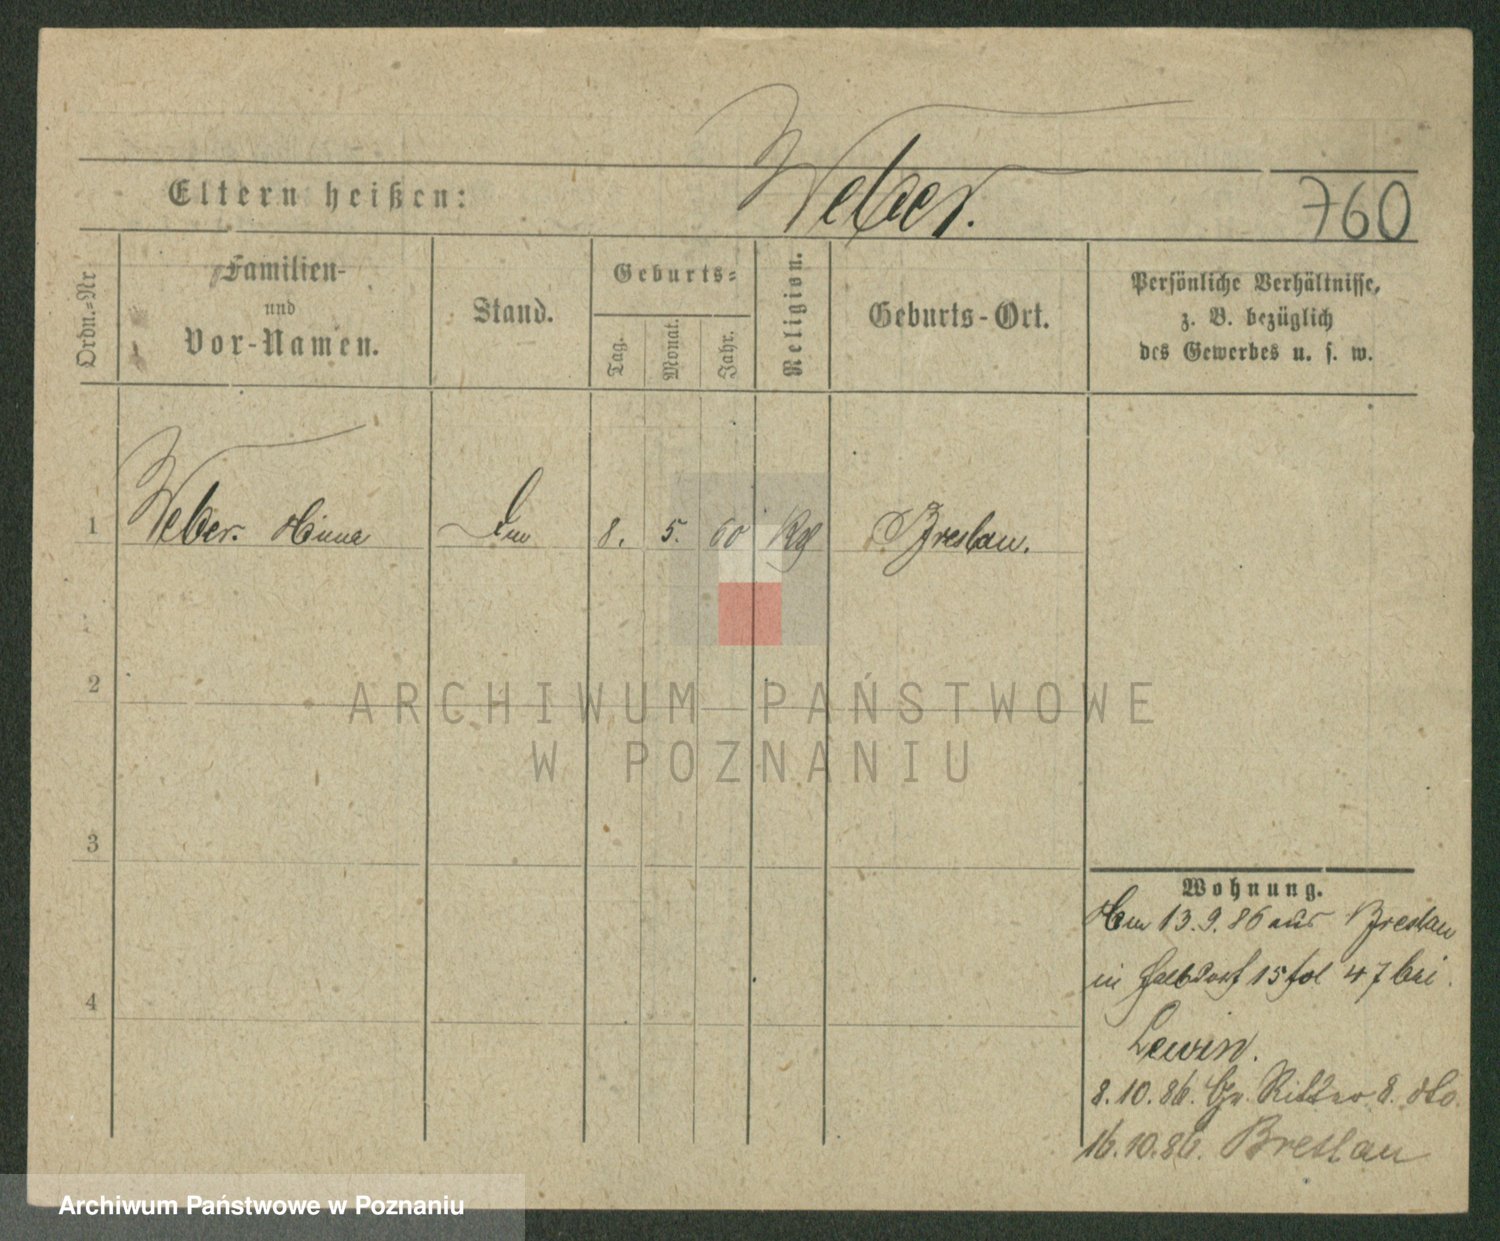 Weber.
Eltern heißen:
760
Ordn.-Nr
Familien-
und
Vor-Namen.
Stand.
Geburts-
Tag.
Monat.
Jahr.
Religion.
Geburts-Ort.
Persönliche Verhältnisse,
z. B. bezüglich
des Gewerbes u. s. w.
1 Weber. 8. 5. 60 Breslau.
2
ARCHIWUM PAŃSTWOWE
W POZNANIU
3
Wohnung.
13.9.86 aus Breslau
in Halbdorf 15 47 bei
4
Lewin.
8.10.86. Gr. Ritter 8. dto.
16.10.86. Breslau
Archiwum Państwowe w Poznaniu